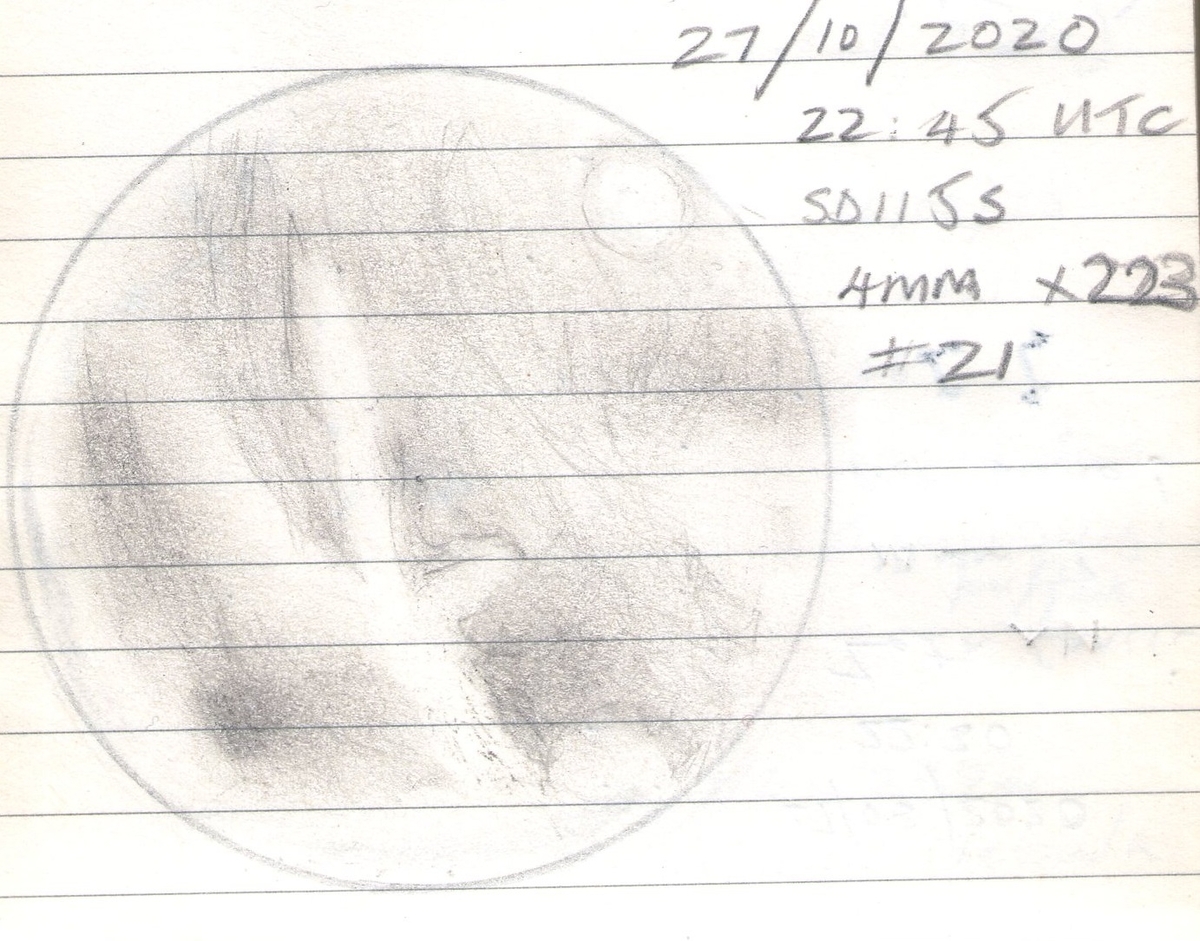 27/10/2020
22:45 UTC
SD115S
4mm x223
#21